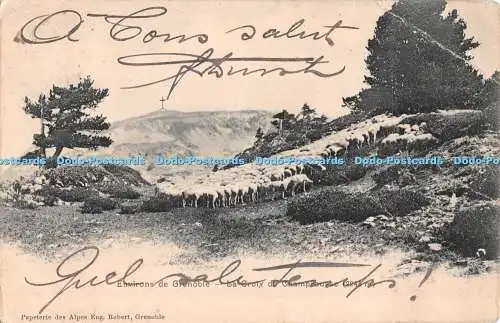 A Tous salut
Dodo-Postcards.com Dodo-Postcards.com Dodo-Postcards.com Dodo-Postcards.com Dodo-Postcards.com
Environs de Grenoble - La Croix de
Quel sale temps!
Papeterie des Alpes Eug. Robert, Grenoble